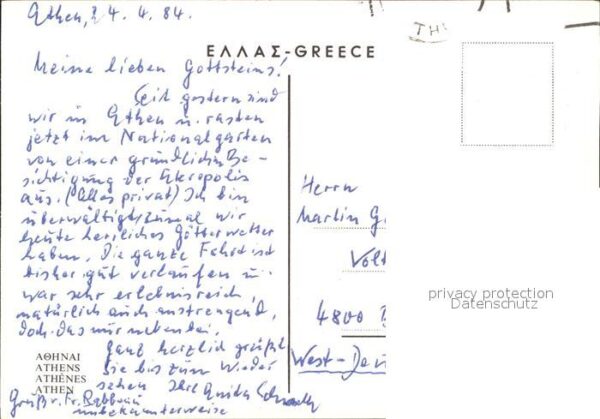 Athen, 24.4.84.
ΕΛΛΑΣ-GREECE
Meine lieben Gottsteins!
Seit gestern sind
wir in Athen u. rasten
jetzt im Nationalgarten
von einer gründlichen Be-
sichtigung der Akropolis
aus. (Alles privat) Ich bin
überwältigt, zumal wir
heute herrliches Götterwetter
haben. Die ganze Fahrt ist
bisher gut verlaufen u.
war sehr erlebnisreich,
natürlich auch anstrengend,
doch das nur nebenbei.
Ganz herzlich grüßt
Sie bis zum Wieder
sehen Ihre Guida
Gruß v. Fr.
unbekannterweise
ΑΘΗΝΑΙ
ATHENS
ATHÈNES
ATHEN
TH
Herrn
Martin G
Volt
4800
West-Deu
privacy protection
Datenschutz